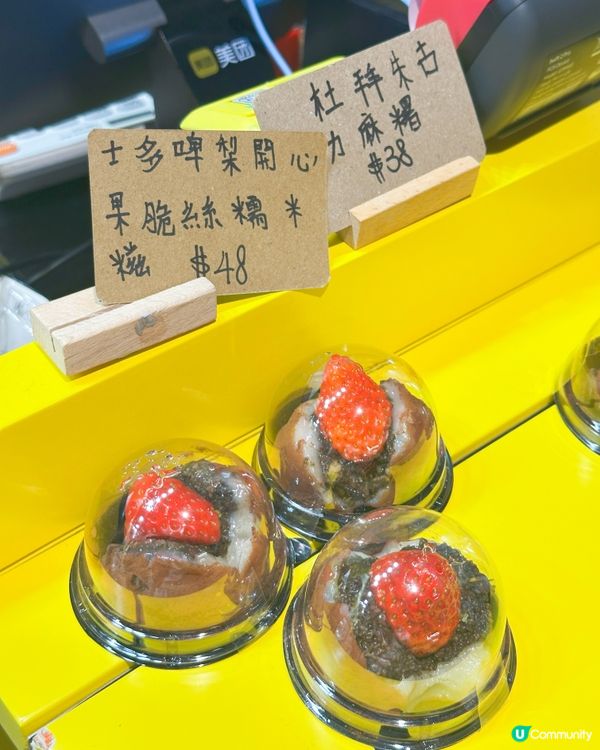 美团
杜拜朱古
力麻糬
$38
士多啤梨開心
果脆絲糯米
糍 $48
U Community